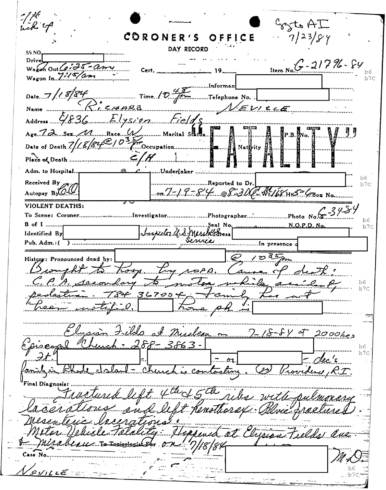 Goes to AI
7/23/84
CORONER'S OFFICE
DAY RECORD
SS NO.
Driver
Wagon Out 6:25 - am Cert. 19 Item No. G-21796-84
Wagon In. 7:15/am
b6
b7C
Informant
Date 7/18/84 Time 10 48 pm Telephone No.
Name Richard NEVILLE
Address 4836 Elysian Fields
Age 72 Sex M Race W Marital Status P.B. No.
FATALITY
Date of Death 7/18/84 @ 10 35 pm Occupation Nativity
Place of Death C/H
Adm. to Hospital @ Undertaker
Received By Reported to Dr.
Autopsy By on 7-19-84 Box No.
b6
b7C
VIOLENT DEATHS:
To Scene: Coroner Investigator Photographer Photo No. G-3984
B of I Seal No. N.O.P.D. No.
Identified By Inspector U.S. Marshal Address
Service
Pub. Adm.: ( ) In presence of
b6
b7C
History: Pronounced dead by: @ 10 35 pm
Brought to hosp. by NOPD. Cause of death:
C.P.A. secondary to motor vehicle accident
pedestrian. TS# 367004 Family has not
been notified. Home ph is
b6
b7C
Elysian Fields at Mirabeau on 7-18-84 at 2000 hrs
Episcopal Church - 288-3863 -
- or - dec's
family in Rhode Island - Church is contacting. Providence, R.I.
b6
b7C
Final Diagnosis:
Fractured left 4th & 5th ribs with pulmonary
lacerations and left hemothorax. Pelvic fractures.
Mesenteric lacerations.
Motor Vehicle Fatality. Happened at Elysian Fields Ave
& Mirabeau on 7/18/84
Case No. M.D.
NEVILLE
b6
b7C